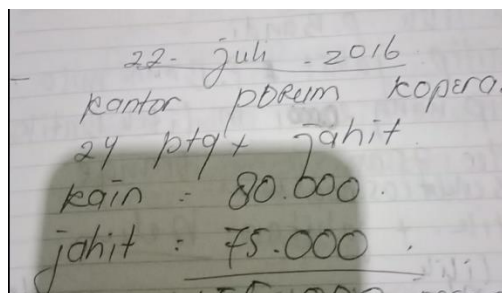 22- juli - 2016
kantor kopera
24 ptg + jahit
kain : 80.000.
jahit : 75.000.